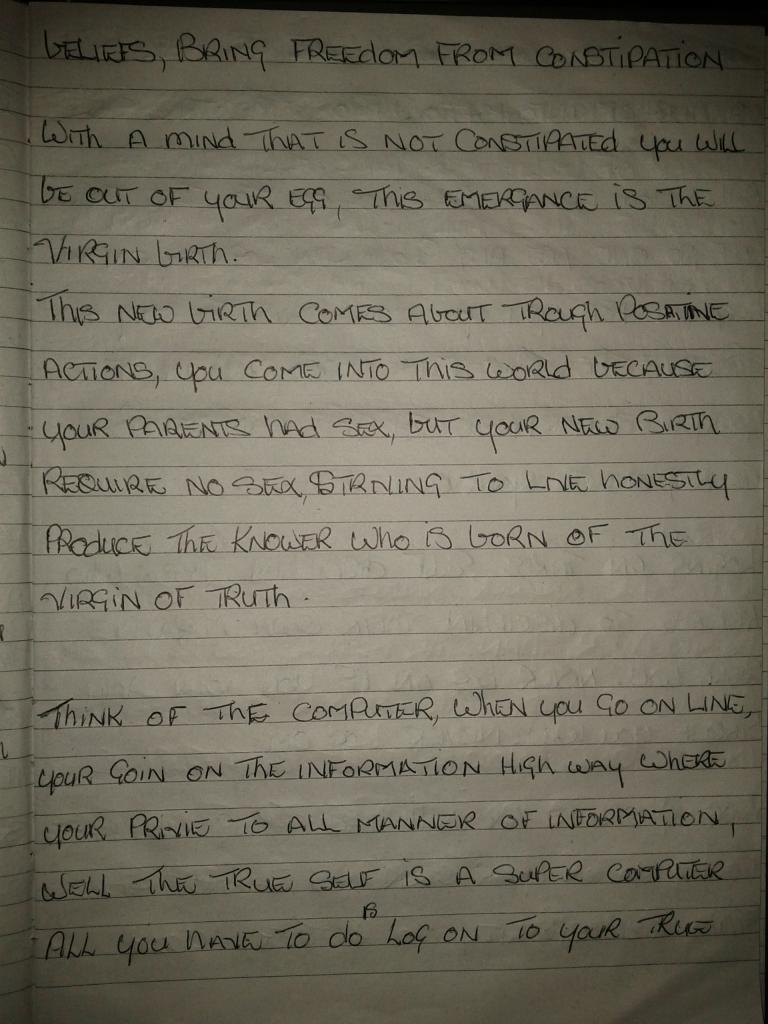 BELIEFS, BRING FREEDOM FROM CONSTIPATION
WITH A MIND THAT IS NOT CONSTIPATED YOU WILL
BE OUT OF YOUR EGG, THIS EMERGANCE IS THE
VIRGIN BIRTH.
THIS NEW BIRTH COMES ABOUT TROUGH POSATINE
ACTIONS, YOU COME INTO THIS WORLD BECAUSE
YOUR PARENTS HAD SEX, BUT YOUR NEW BIRTH
REQUIRE NO SEX, STRIVING TO LIVE HONESTLY
PRODUCE THE KNOWER WHO IS BORN OF THE
VIRGIN OF TRUTH.
THINK OF THE COMPUTER, WHEN YOU GO ON LINE,
YOUR GOIN ON THE INFORMATION HIGH WAY WHERE
YOUR PRIVIE TO ALL MANNER OF INFORMATION,
WELL THE TRUE SELF IS A SUPER COMPUTER
ALL YOU HAVE TO DO IS LOG ON TO YOUR TRUE